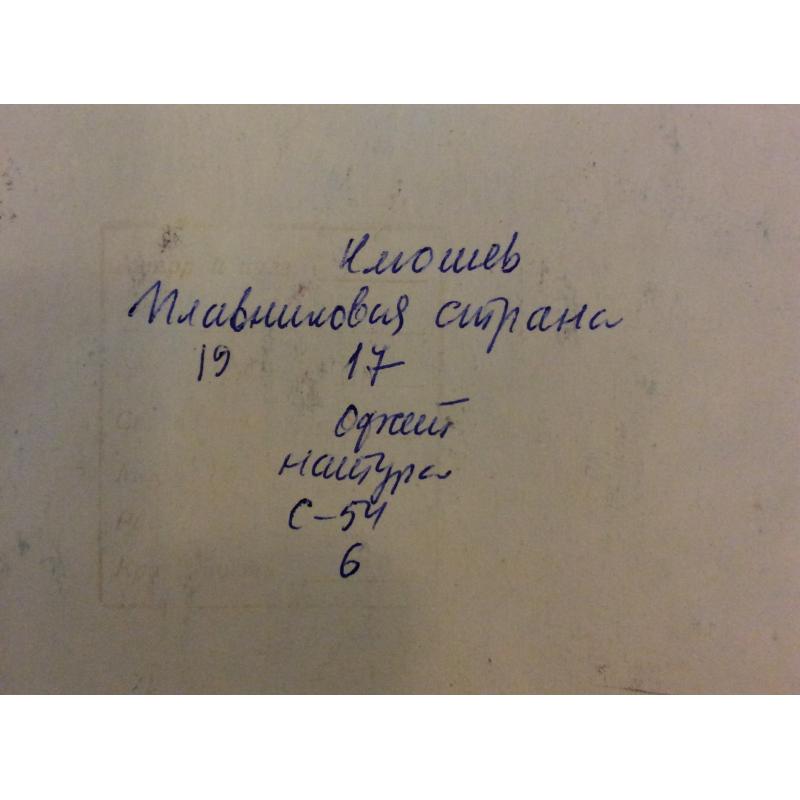 Клюшев
Плавниковая страна
19 17
натура
С-54
6